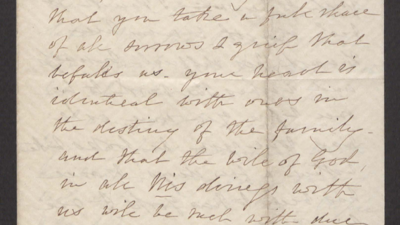 that you take a full share
of all sorrows & grief that
befalls us. your heart is
identical with ours in
the destiny of the family.
and that the will of God,
in all His dealings with
us will be met with due